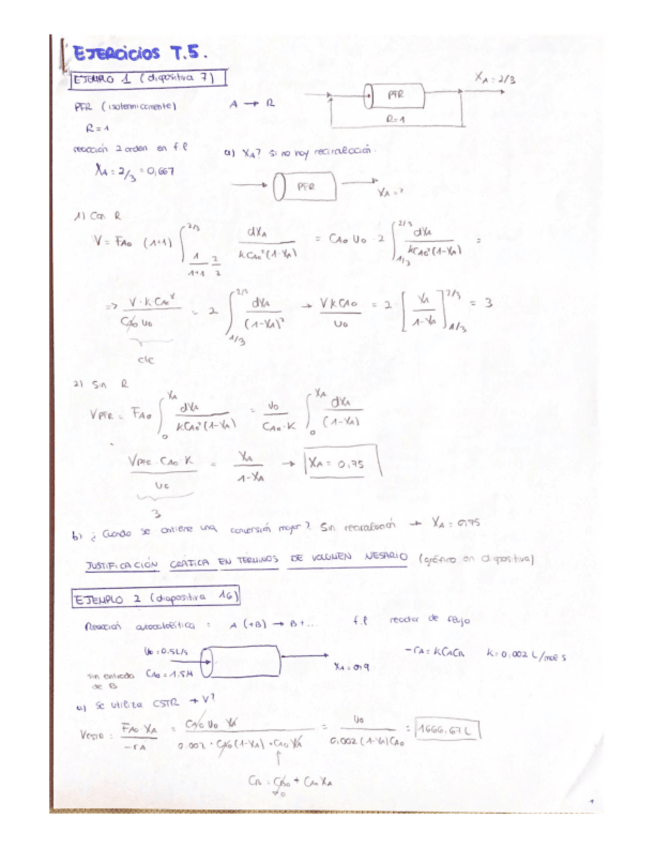 EJERCICIOS T.5.
EJEMPLO 1 (diapositiva 7)
XA = 2/3
PFR (isotérmicamente) A → R PFR
R = 1 R=1
reacción 2 orden en f.l a) XA? si no hay recirculación.
XA = 2/3 = 0,667
PFR XA = ?
1) Con R
V = FAo (1+1) ∫ 2/3 1/(1+1) 2/3 dXA / kCAo²(1-XA) = CAo Uo · 2 ∫ 2/3 1/3 dXA / kCAo²(1-XA) =
=> V·k CAo² / CAo Uo = 2 ∫ 2/3 1/3 dXA / (1-XA)² → V k CAo / Uo = 2 [ XA / 1-XA ] 2/3 1/3 = 3
cte
2) Sin R
VPFR = FAo ∫ XA 0 dXA / kCAo²(1-XA) = Uo / CAo·K ∫ XA 0 dXA / (1-XA)
VPFR · CAo · K / Uo = XA / 1-XA → XA = 0,75
3
b) ¿Cuando se obtiene una conversión mayor? Sin recirculación → XA = 0,75
JUSTIFICACIÓN GRÁFICA EN TERMINOS DE VOLUMEN NESARIO (gráfico en diapositiva)
EJEMPLO 2 (diapositiva 16)
Reacción autocatalítica : A (+B) → B+... f.l reactor de flujo
Uo = 0,5 L/s -rA = KCACB K = 0.002 L/mol s
Sin entrada de B CAo = 1.5M XA = 0,9
a) Se utiliza CSTR → V?
VCSTR = FAo XA / -rA = CAo Uo XA / 0.002 · CAo (1-XA) · CAo XA = Uo / 0,002 (1-XA)CAo = 1666,67 L
CB = CBo + CAo XA
=0
1